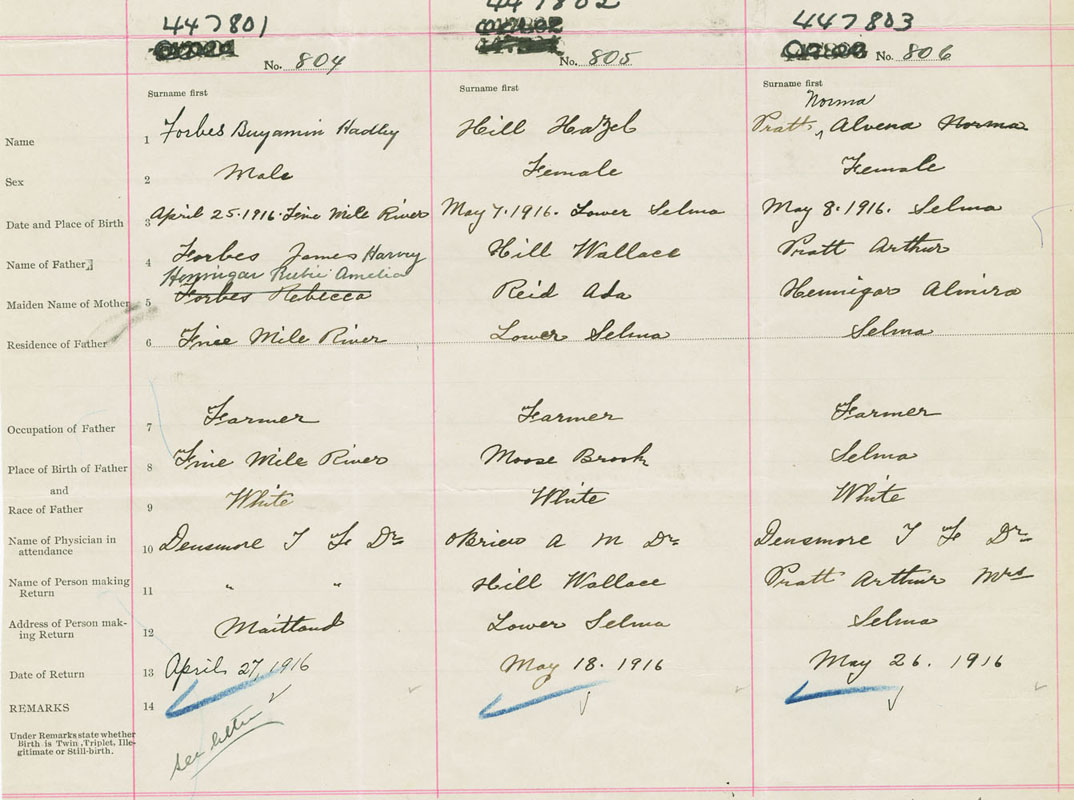 447801 447802 447803
No. 804 No. 805 No. 806
Surname first Surname first Surname first
Norma
Name 1 Forbes Benjamin Hadley Hill Hazel Pratt ‸ Alvena Norma
Sex 2 Male Female Female
Date and Place of Birth 3 April 25.1916. Five Mile River May 7.1916. Lower Selma May 8.1916. Selma
Name of Father 4 Forbes James Harvey Hill Wallace Pratt Arthur
Hennigar Rubie Amelia
Maiden Name of Mother 5 Forbes Rebecca Reid Ada Hennigar Almira
Residence of Father 6 Five Mile River Lower Selma Selma
Occupation of Father 7 Farmer Farmer Farmer
Place of Birth of Father 8 Five Mile River Moose Brook Selma
and
Race of Father 9 White White White
Name of Physician in
attendance 10 Densmore T F Dr OBrien A M Dr Densmore T F Dr
Name of Person making
Return 11 " " Hill Wallace Pratt Arthur Mrs
Address of Person mak-
ing Return 12 Maitland Lower Selma Selma
Date of Return 13 April 27, 1916 May 18. 1916 May 26. 1916
REMARKS 14
Under Remarks state whether
Birth is Twin, Triplet, Ille-
gitimate or Still-birth.
see letter